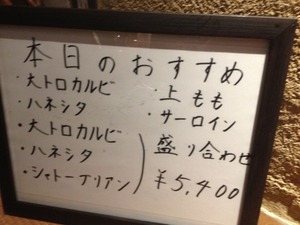 本日のおすすめ
・大トロカルビ ・上もも
・ハネシタ ・サーロイン
・大トロカルビ
・ハネシタ 盛り合わせ
・シャトーブリアン ¥5,400